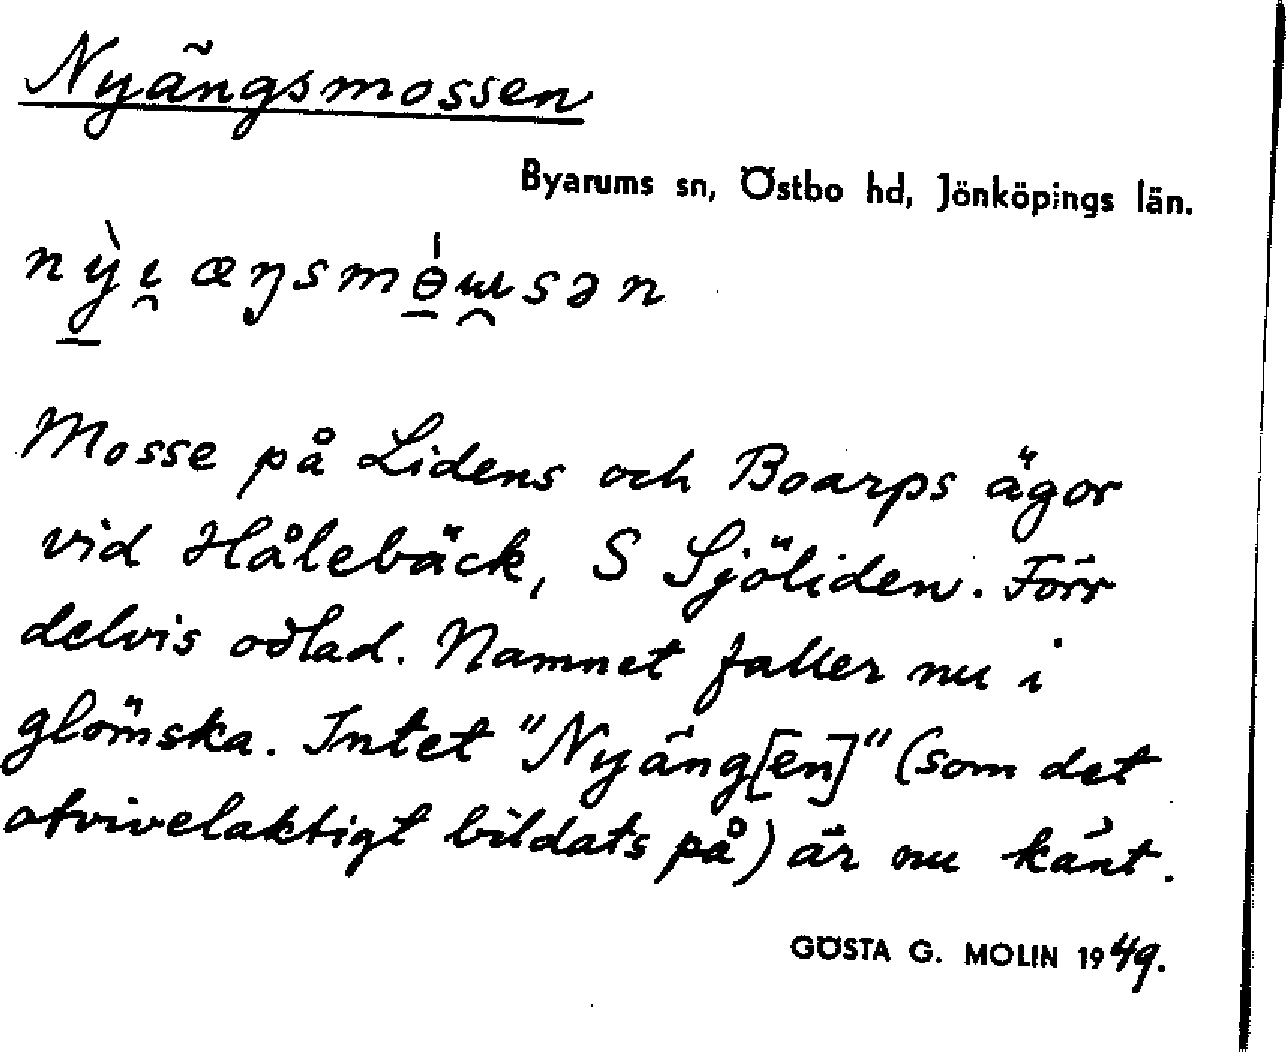 Nyängsmossen
Byarums sn, Östbo hd, Jönköpings län.
nỳ̠ι̯æŋsmɵ̠́ɯ̯sən
Mosse på Lidens och Boarps ägor
vid Hålebäck, S Sjöliden. Förr
delvis odlad. Namnet faller nu i
glömska. Intet "Nyäng[en]" (som det
otvivelaktigt bildats på) är nu känt.
GÖSTA G. MOLIN 1949.